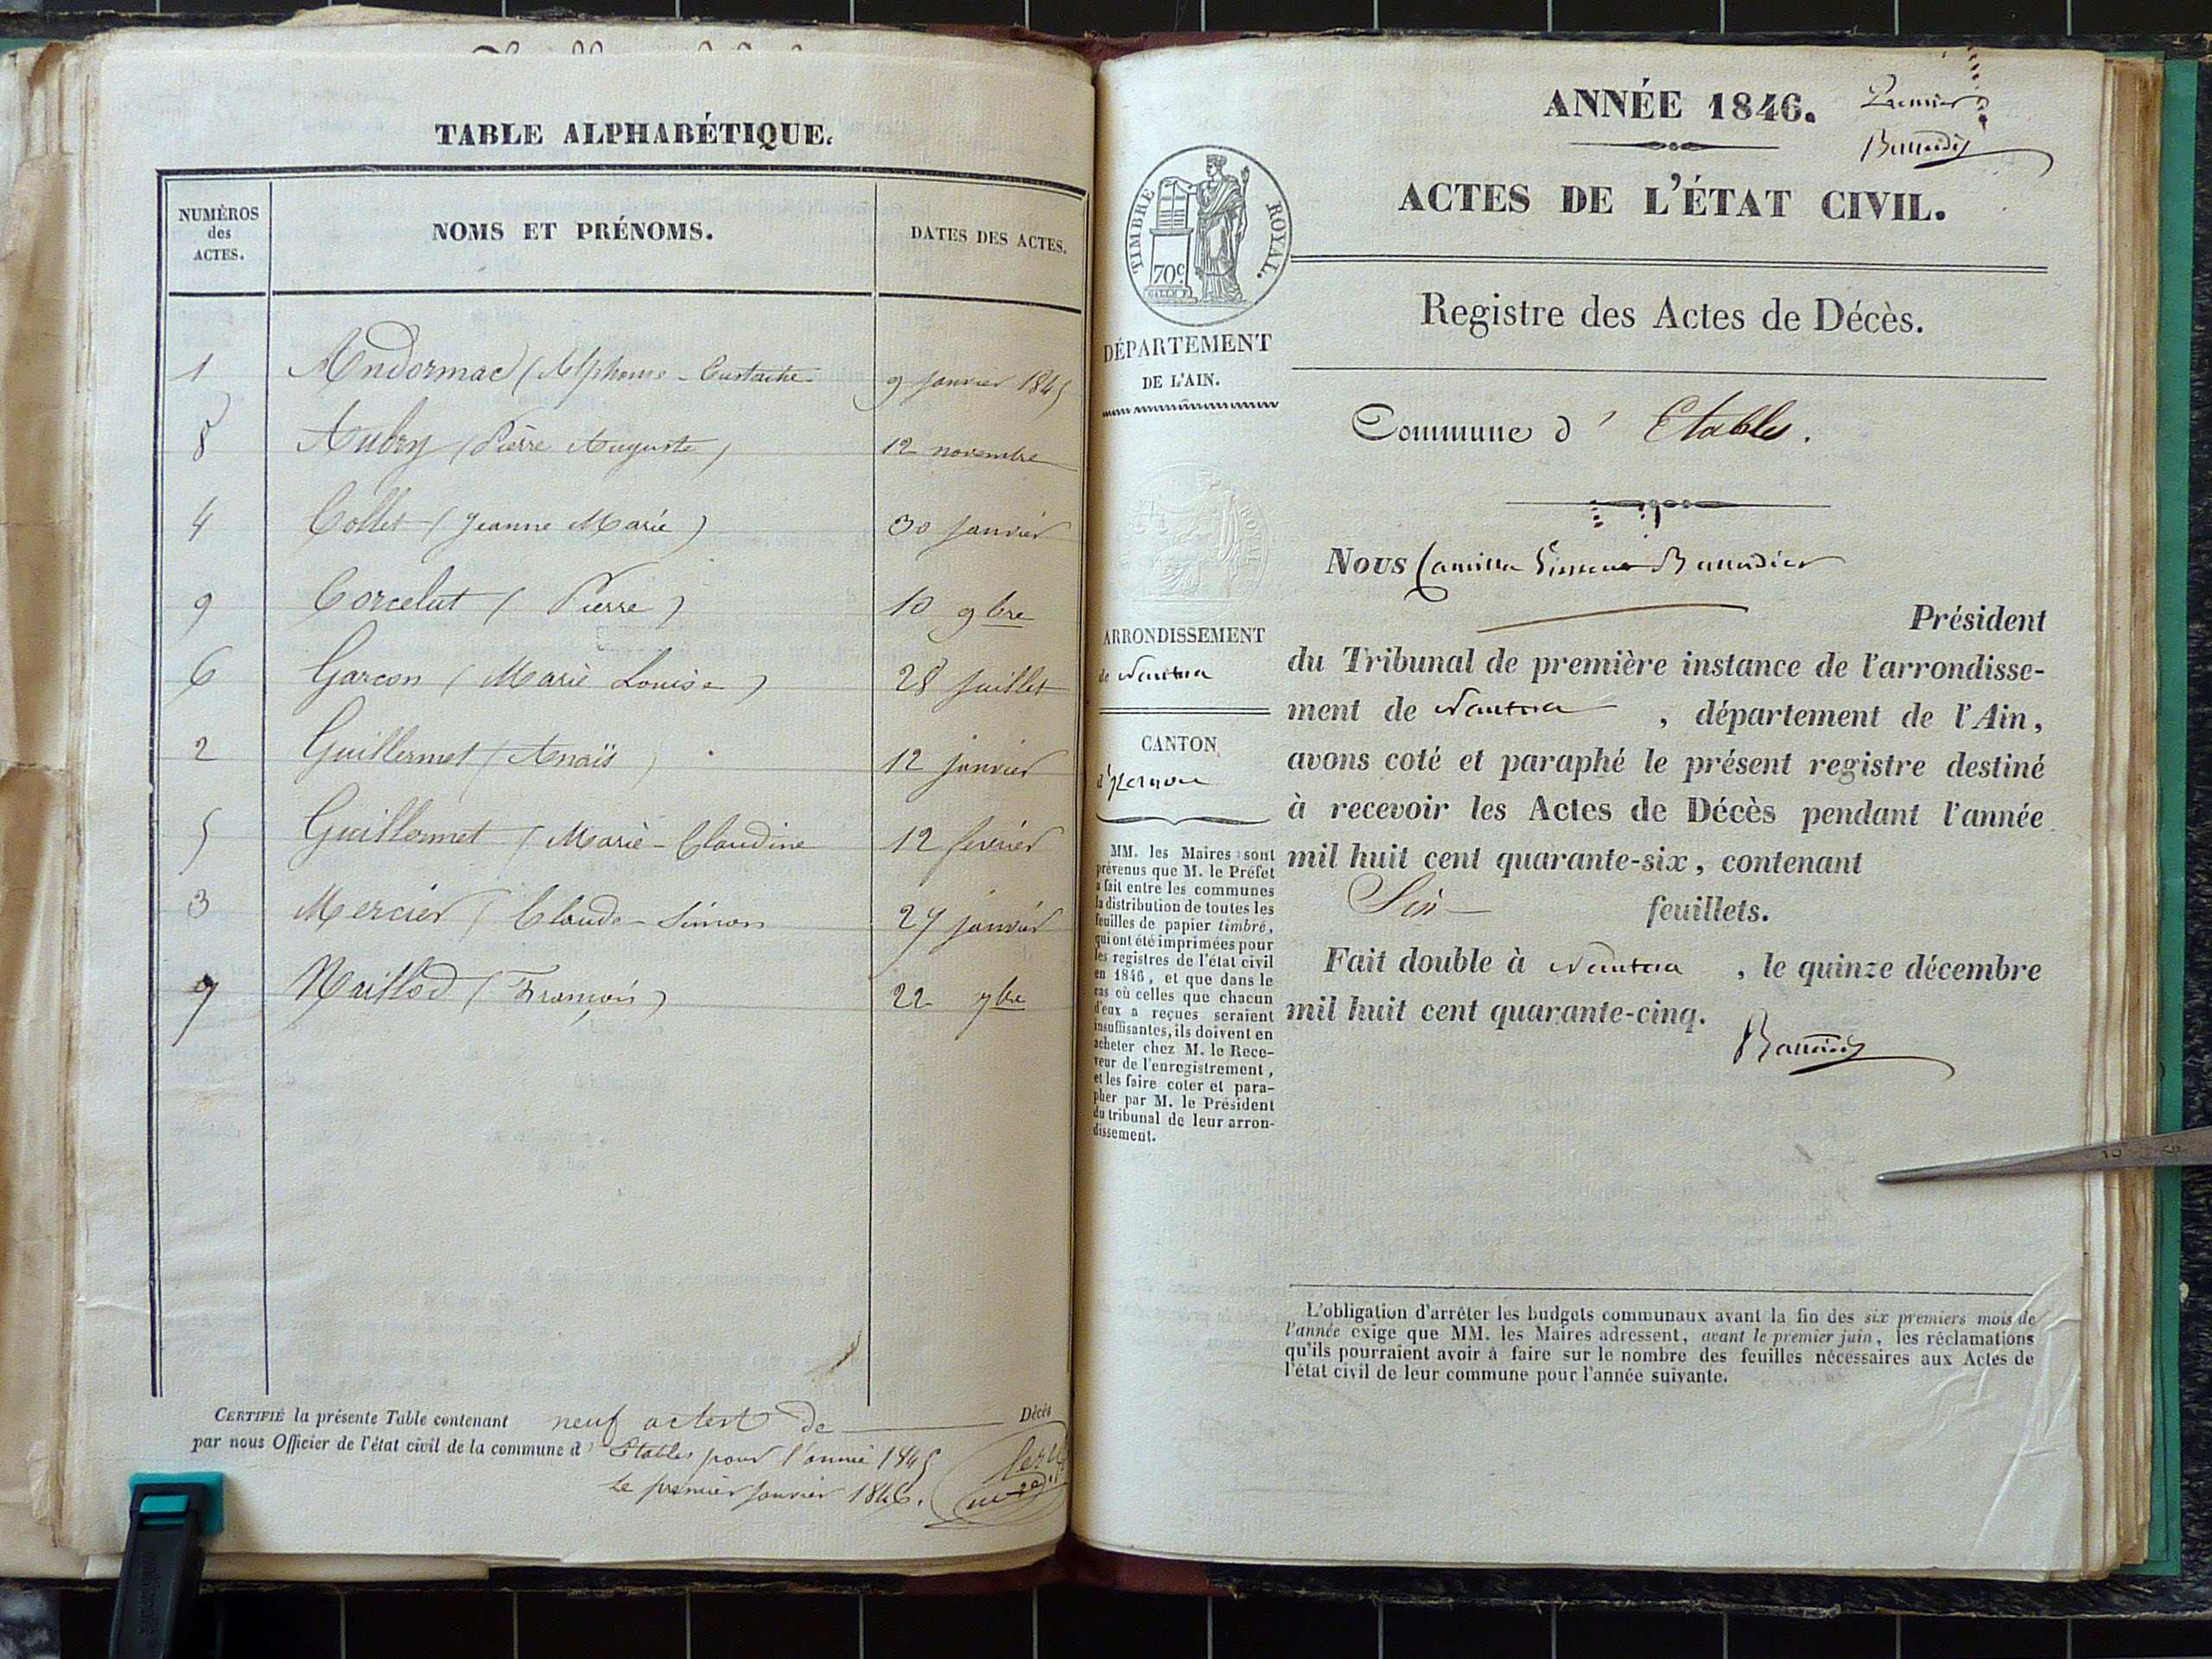 TABLE ALPHABÉTIQUE.
NUMÉROS des ACTES.
NOMS ET PRÉNOMS.
DATES DES ACTES.
1 Andormac (Alphonse-Eustache 9 janvier 1845
8 Aubry (Pierre Auguste) 12 novembre
4 Collet (Jeanne Marie) 30 janvier
9 Corcelut (Pierre) 10 9bre
6 Garcon (Marie Louise) 28 juillet
2 Guillermet (Anaïs) 12 janvier
5 Guillermet (Marie-Claudine 12 fevrier
3 Mercier (Claude-Simon 27 janvier
7 Maillod (François) 22 7bre
CERTIFIÉ la présente Table contenant neuf actes de Décès
par nous Officier de l'état civil de la commune d' Etables pour l'année 1845
Le premier janvier 1846.
ANNÉE 1846.
Premier
ACTES DE L'ÉTAT CIVIL.
TIMBRE ROYAL.
70c
Registre des Actes de Décès.
DÉPARTEMENT
DE L'AIN.
Commune d' Etables.
Nous Camille Baudier
Président
ARRONDISSEMENT
de Nantua
CANTON
d'Izernore
du Tribunal de première instance de l'arrondisse-
ment de Nantua, département de l'Ain,
avons coté et paraphé le présent registre destiné
à recevoir les Actes de Décès pendant l'année
mil huit cent quarante-six, contenant
Six feuillets.
Fait double à Nantua, le quinze décembre
mil huit cent quarante-cinq.
MM. les Maires sont
prévenus que M. le Préfet
a fait entre les communes
la distribution de toutes les
feuilles de papier timbré,
qui ont été imprimées pour
les registres de l'état civil
en 1846, et que dans le
cas où celles que chacun
d'eux a reçues seraient
insuffisantes, ils doivent en
acheter chez M. le Rece-
veur de l'enregistrement,
et les faire coter et para-
pher par M. le Président
du tribunal de leur arron-
dissement.
L'obligation d'arrêter les budgets communaux avant la fin des six premiers mois de
l'année exige que MM. les Maires adressent, avant le premier juin, les réclamations
qu'ils pourraient avoir à faire sur le nombre des feuilles nécessaires aux Actes de
l'état civil de leur commune pour l'année suivante.